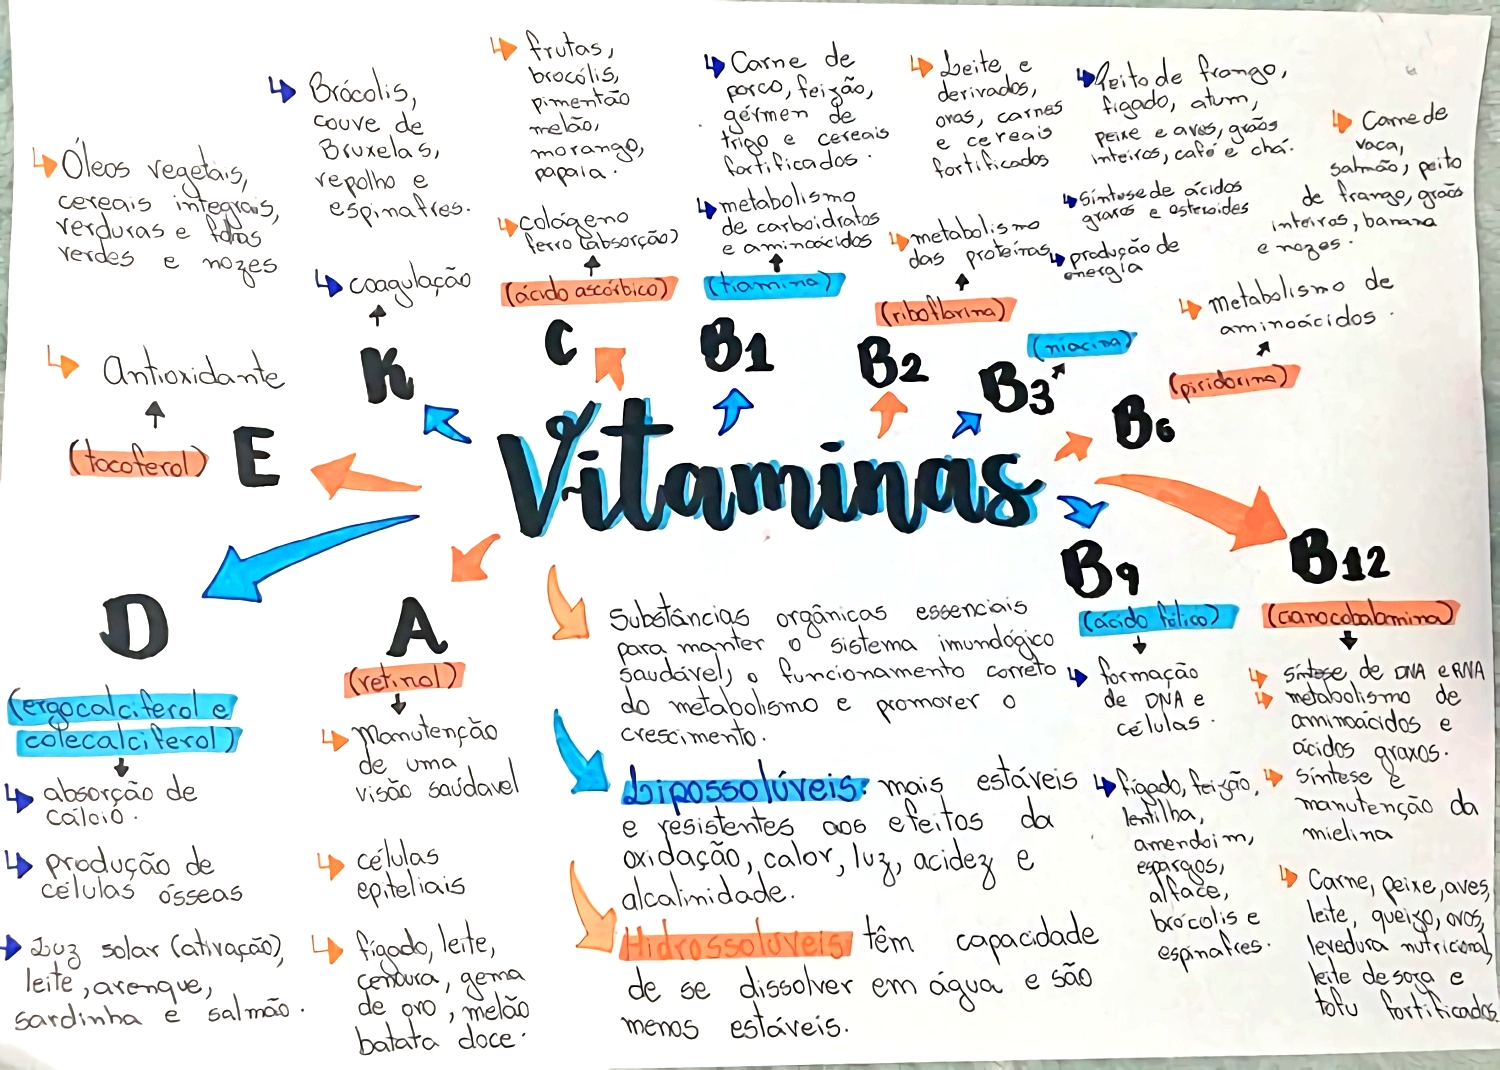 Óleos vegetais,
cereais integrais,
verduras e folhas
verdes e nozes
Antioxidante
(tocoferol)
E
Brócolis,
couve de
Bruxelas,
repolho e
espinafres.
coagulação
K
frutas,
brocólis,
pimentão
melão,
morango,
papaia.
colágeno
ferro (absorção)
(ácido ascórbico)
C
Carne de
porco, feijão,
gérmen de
trigo e cereais
fortificados.
metabolismo
de carboidratos
e aminoácidos
(tiamina)
B1
Leite e
derivados,
ovos, carnes
e cereais
fortificados
metabolismo
das proteínas
(riboflavina)
B2
Peito de frango,
fígado, atum,
peixe e aves, grãos
inteiros, café e chá.
síntese de ácidos
graxos e esteroides
produção de
energia
(niacina)
B3
Carne de
vaca,
salmão, peito
de frango, grãos
inteiros, banana
e nozes.
metabolismo de
aminoácidos.
(piridoxina)
B6
Vitaminas
D
(ergocalciferol e
colecalciferol)
absorção de
cálcio.
produção de
células ósseas
Luz solar (ativação),
leite, arenque,
sardinha e salmão.
A
(retinol)
Manutenção
de uma
visão saúdavel
células
epiteliais
fígado, leite,
cenoura, gema
de ovo, melão
batata doce.
Substâncias orgânicas essenciais
para manter o sistema imunológico
saudável, o funcionamento correto
do metabolismo e promover o
crescimento.
Lipossolúveis: mais estáveis
e resistentes aos efeitos da
oxidação, calor, luz, acidez e
alcalinidade.
Hidrossolúveis: têm capacidade
de se dissolver em água e são
menos estáveis.
B9
(ácido fólico)
formação
de DNA e
células.
fígado, feijão,
lentilha,
amendoim,
espargos,
alface,
brócolis e
espinafres.
B12
(cianocobalamina)
síntese de DNA e RNA
metabolismo de
aminoácidos e
ácidos graxos.
síntese e
manutenção da
mielina
Carne, peixe, aves,
leite, queijo, ovos,
levedura nutricional,
leite de soja e
tofu fortificados.